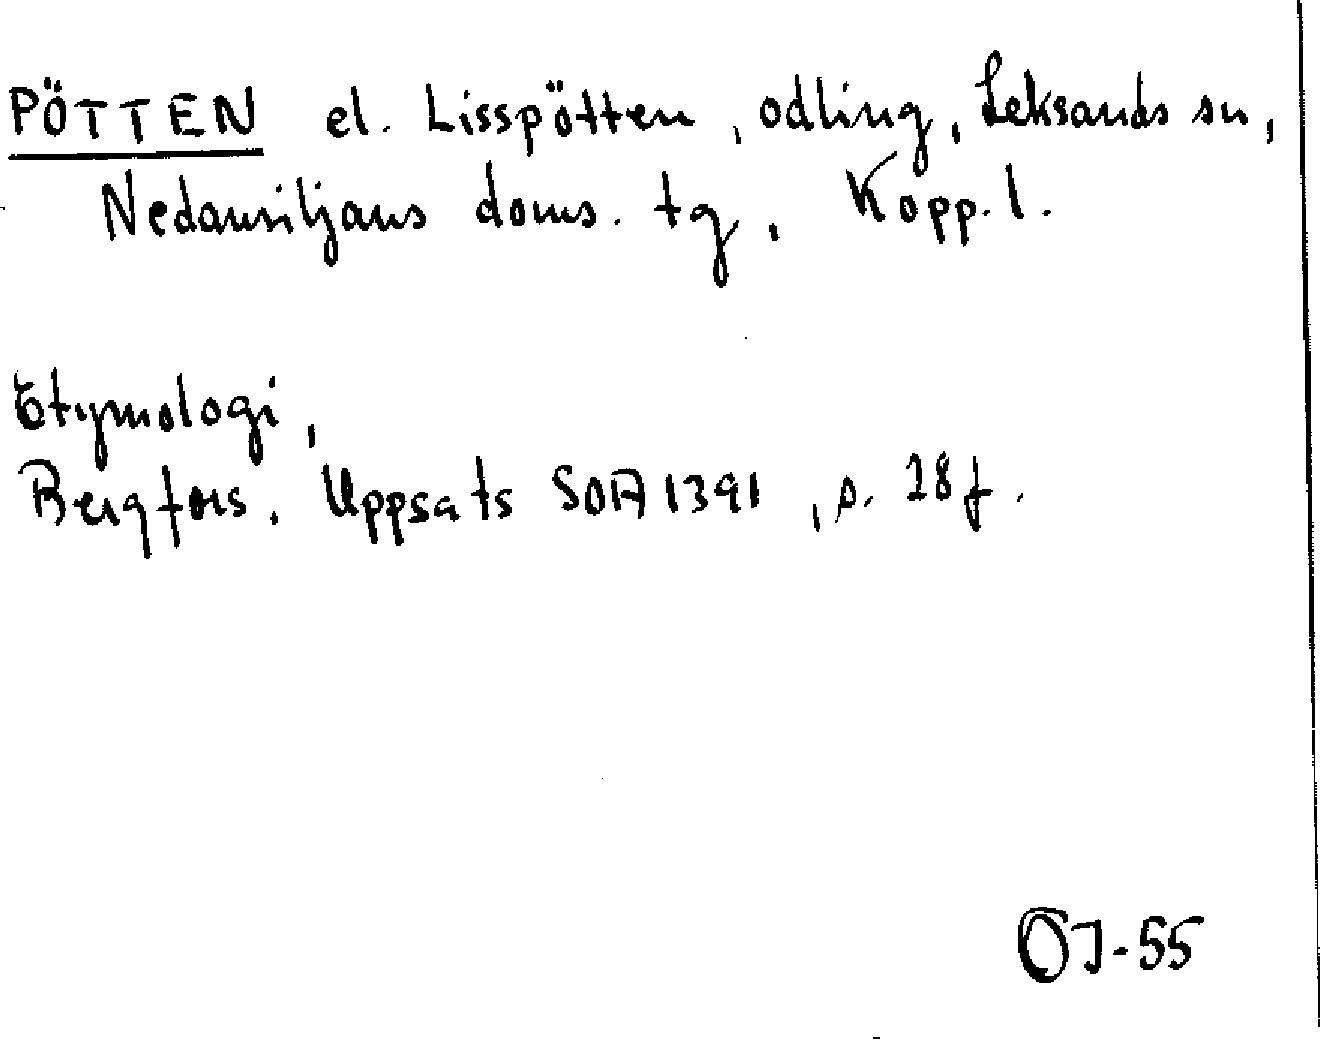 PÖTTEN el. Lisspötten, odling, Leksands sn,
Nedansiljans doms. tg, Kopp. l.
Etymologi,
Bergfors, Uppsats SOA 1391, s. 28 f.
OJ-55